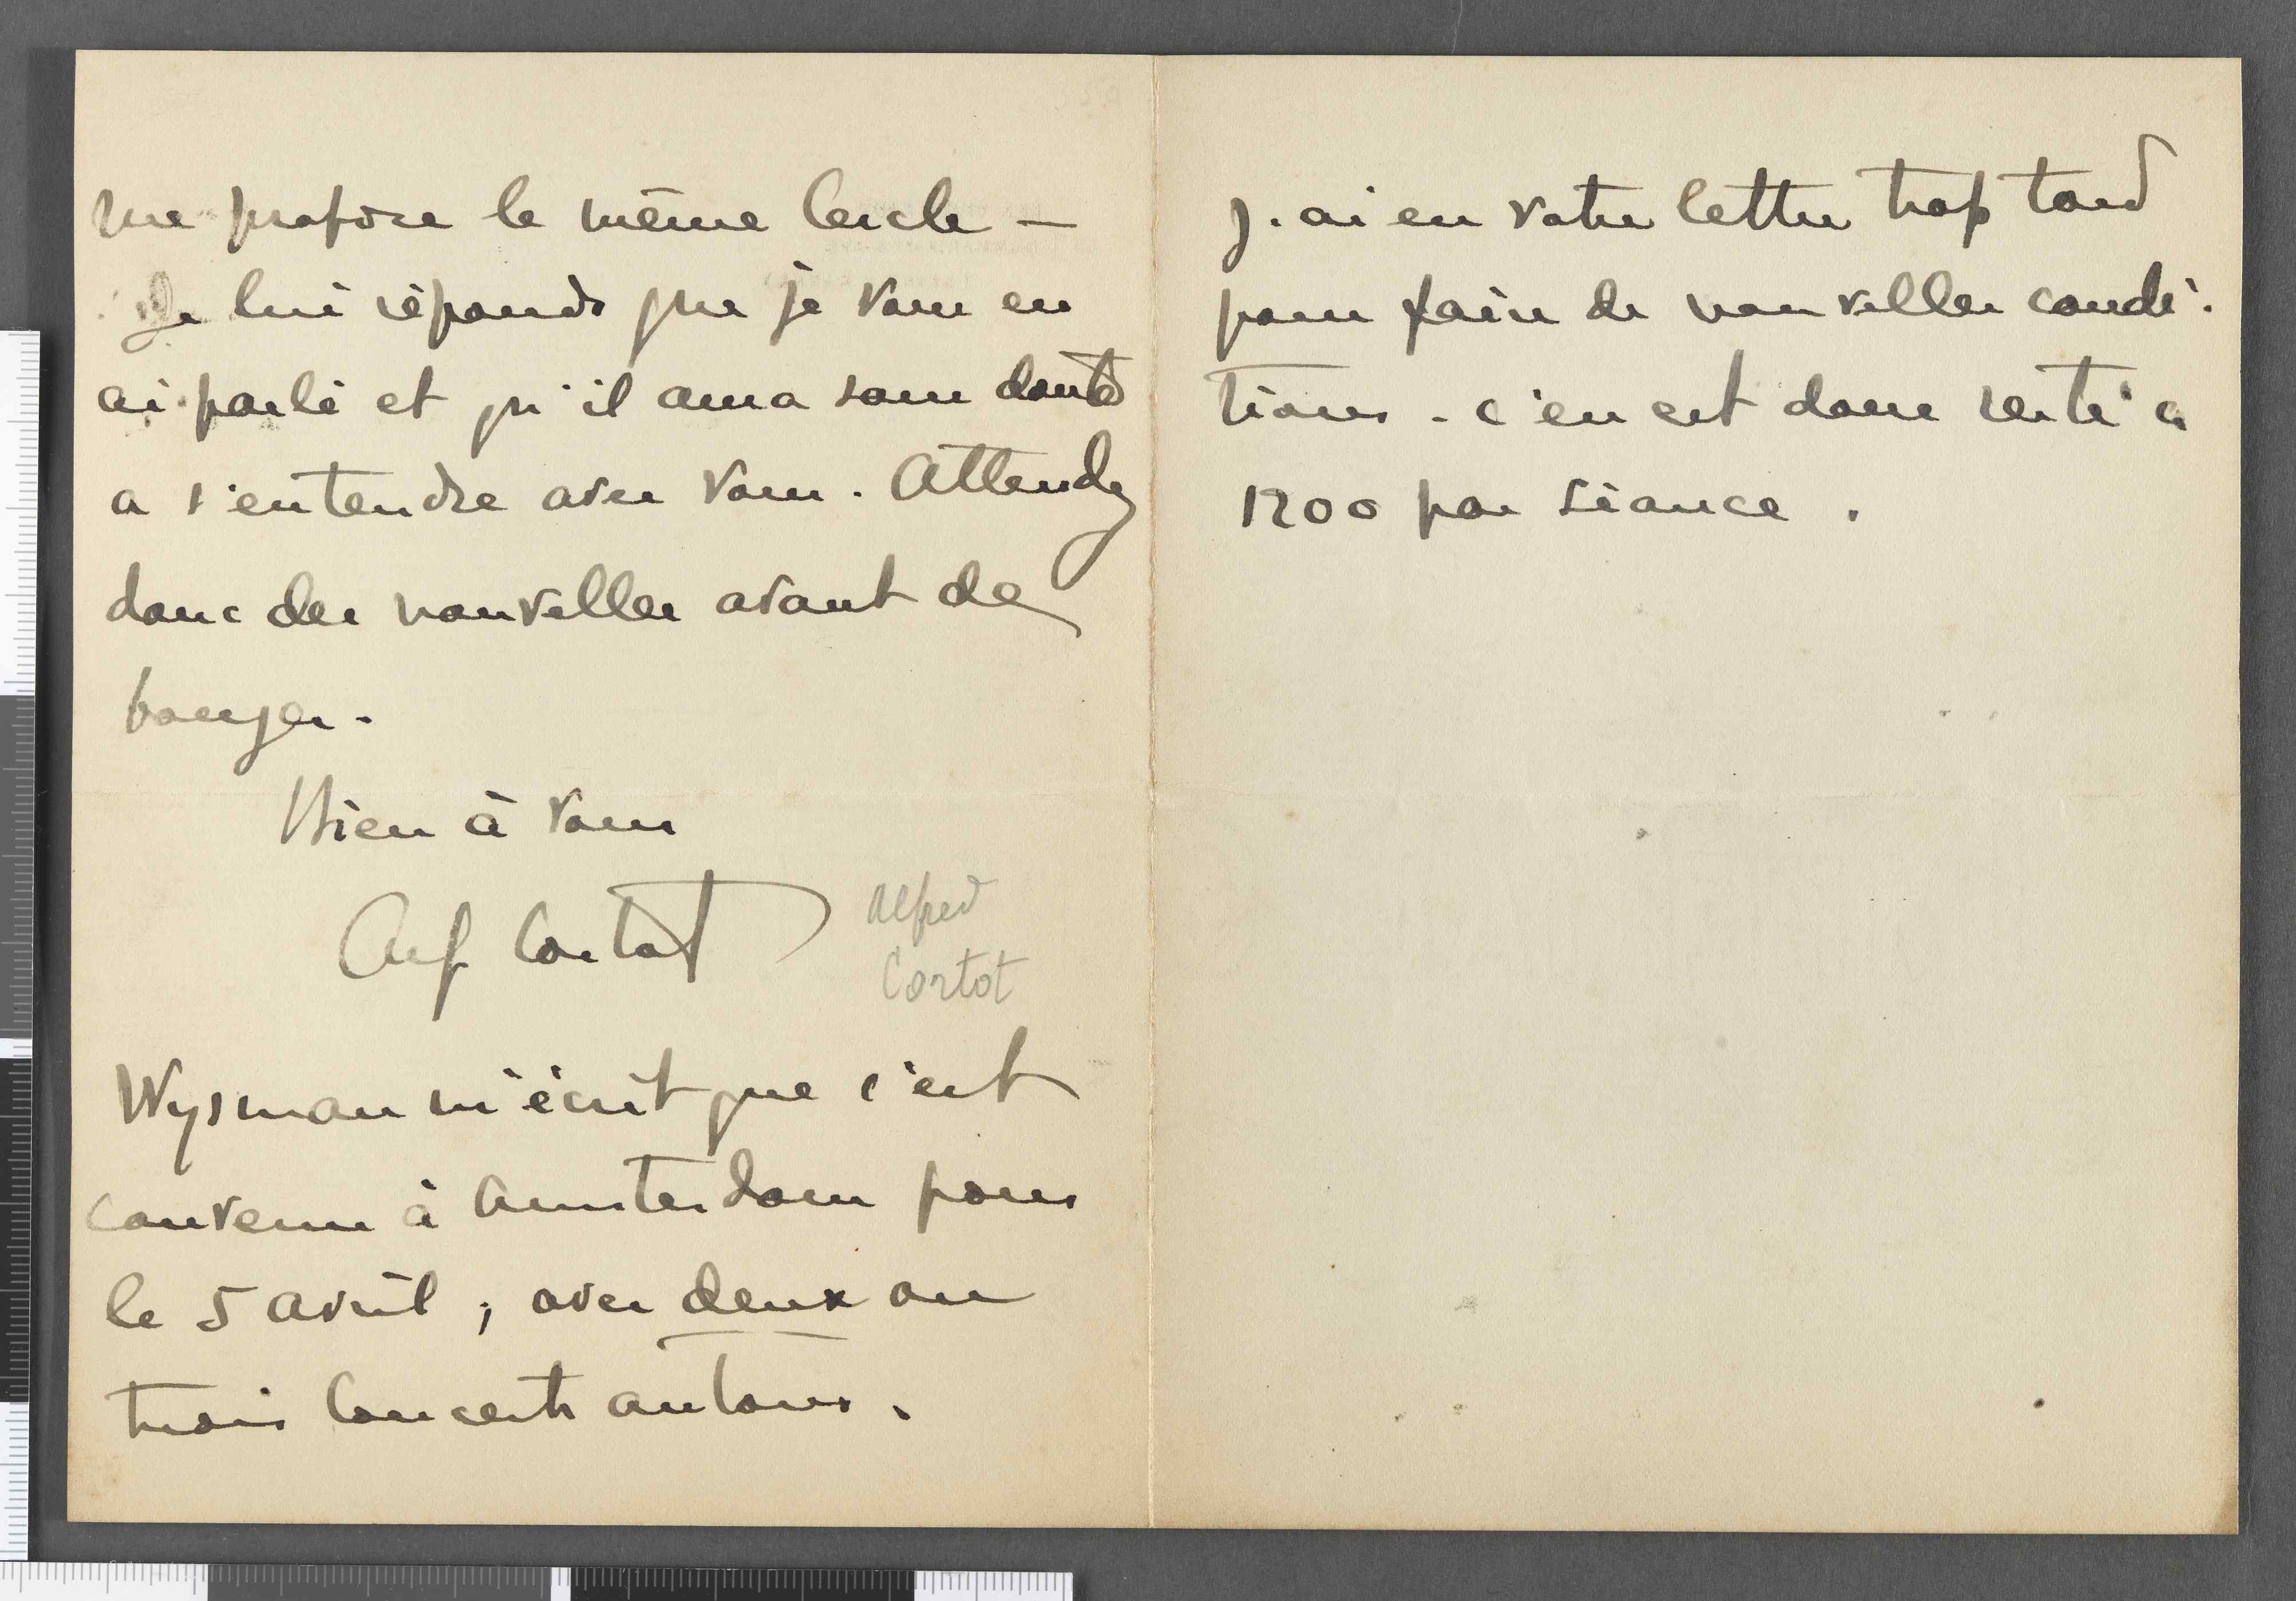 me propose le même Cercle -
Je lui réponds que je vous en
ai parlé et qu'il aura sans doute
a s'entendre avec vous. Attendez
donc des nouvelles avant de
bouger.
Bien à vous
Alf Cortot
Alfred
Cortot
Wysman m'écrit que c'est
convenu à Amsterdam pour
le 5 avril ; avec deux ou
trois Concerts autour.
J'ai eu votre lettre trop tard
pour faire de nouvelles condi-
tions - c'en est donc resté à
1200 par séance.